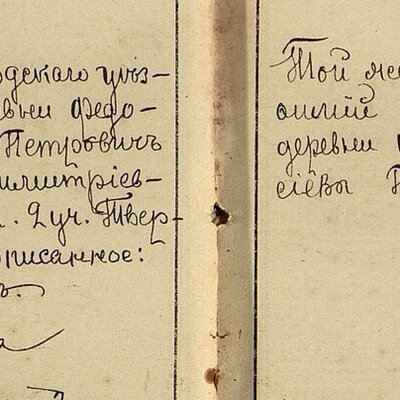 одскаго уѣз-
вни Ѳедо-
Петровичъ
илитріев-
2 уч. Твер-
описанное:
Той же
онлій
деревни
сіевы